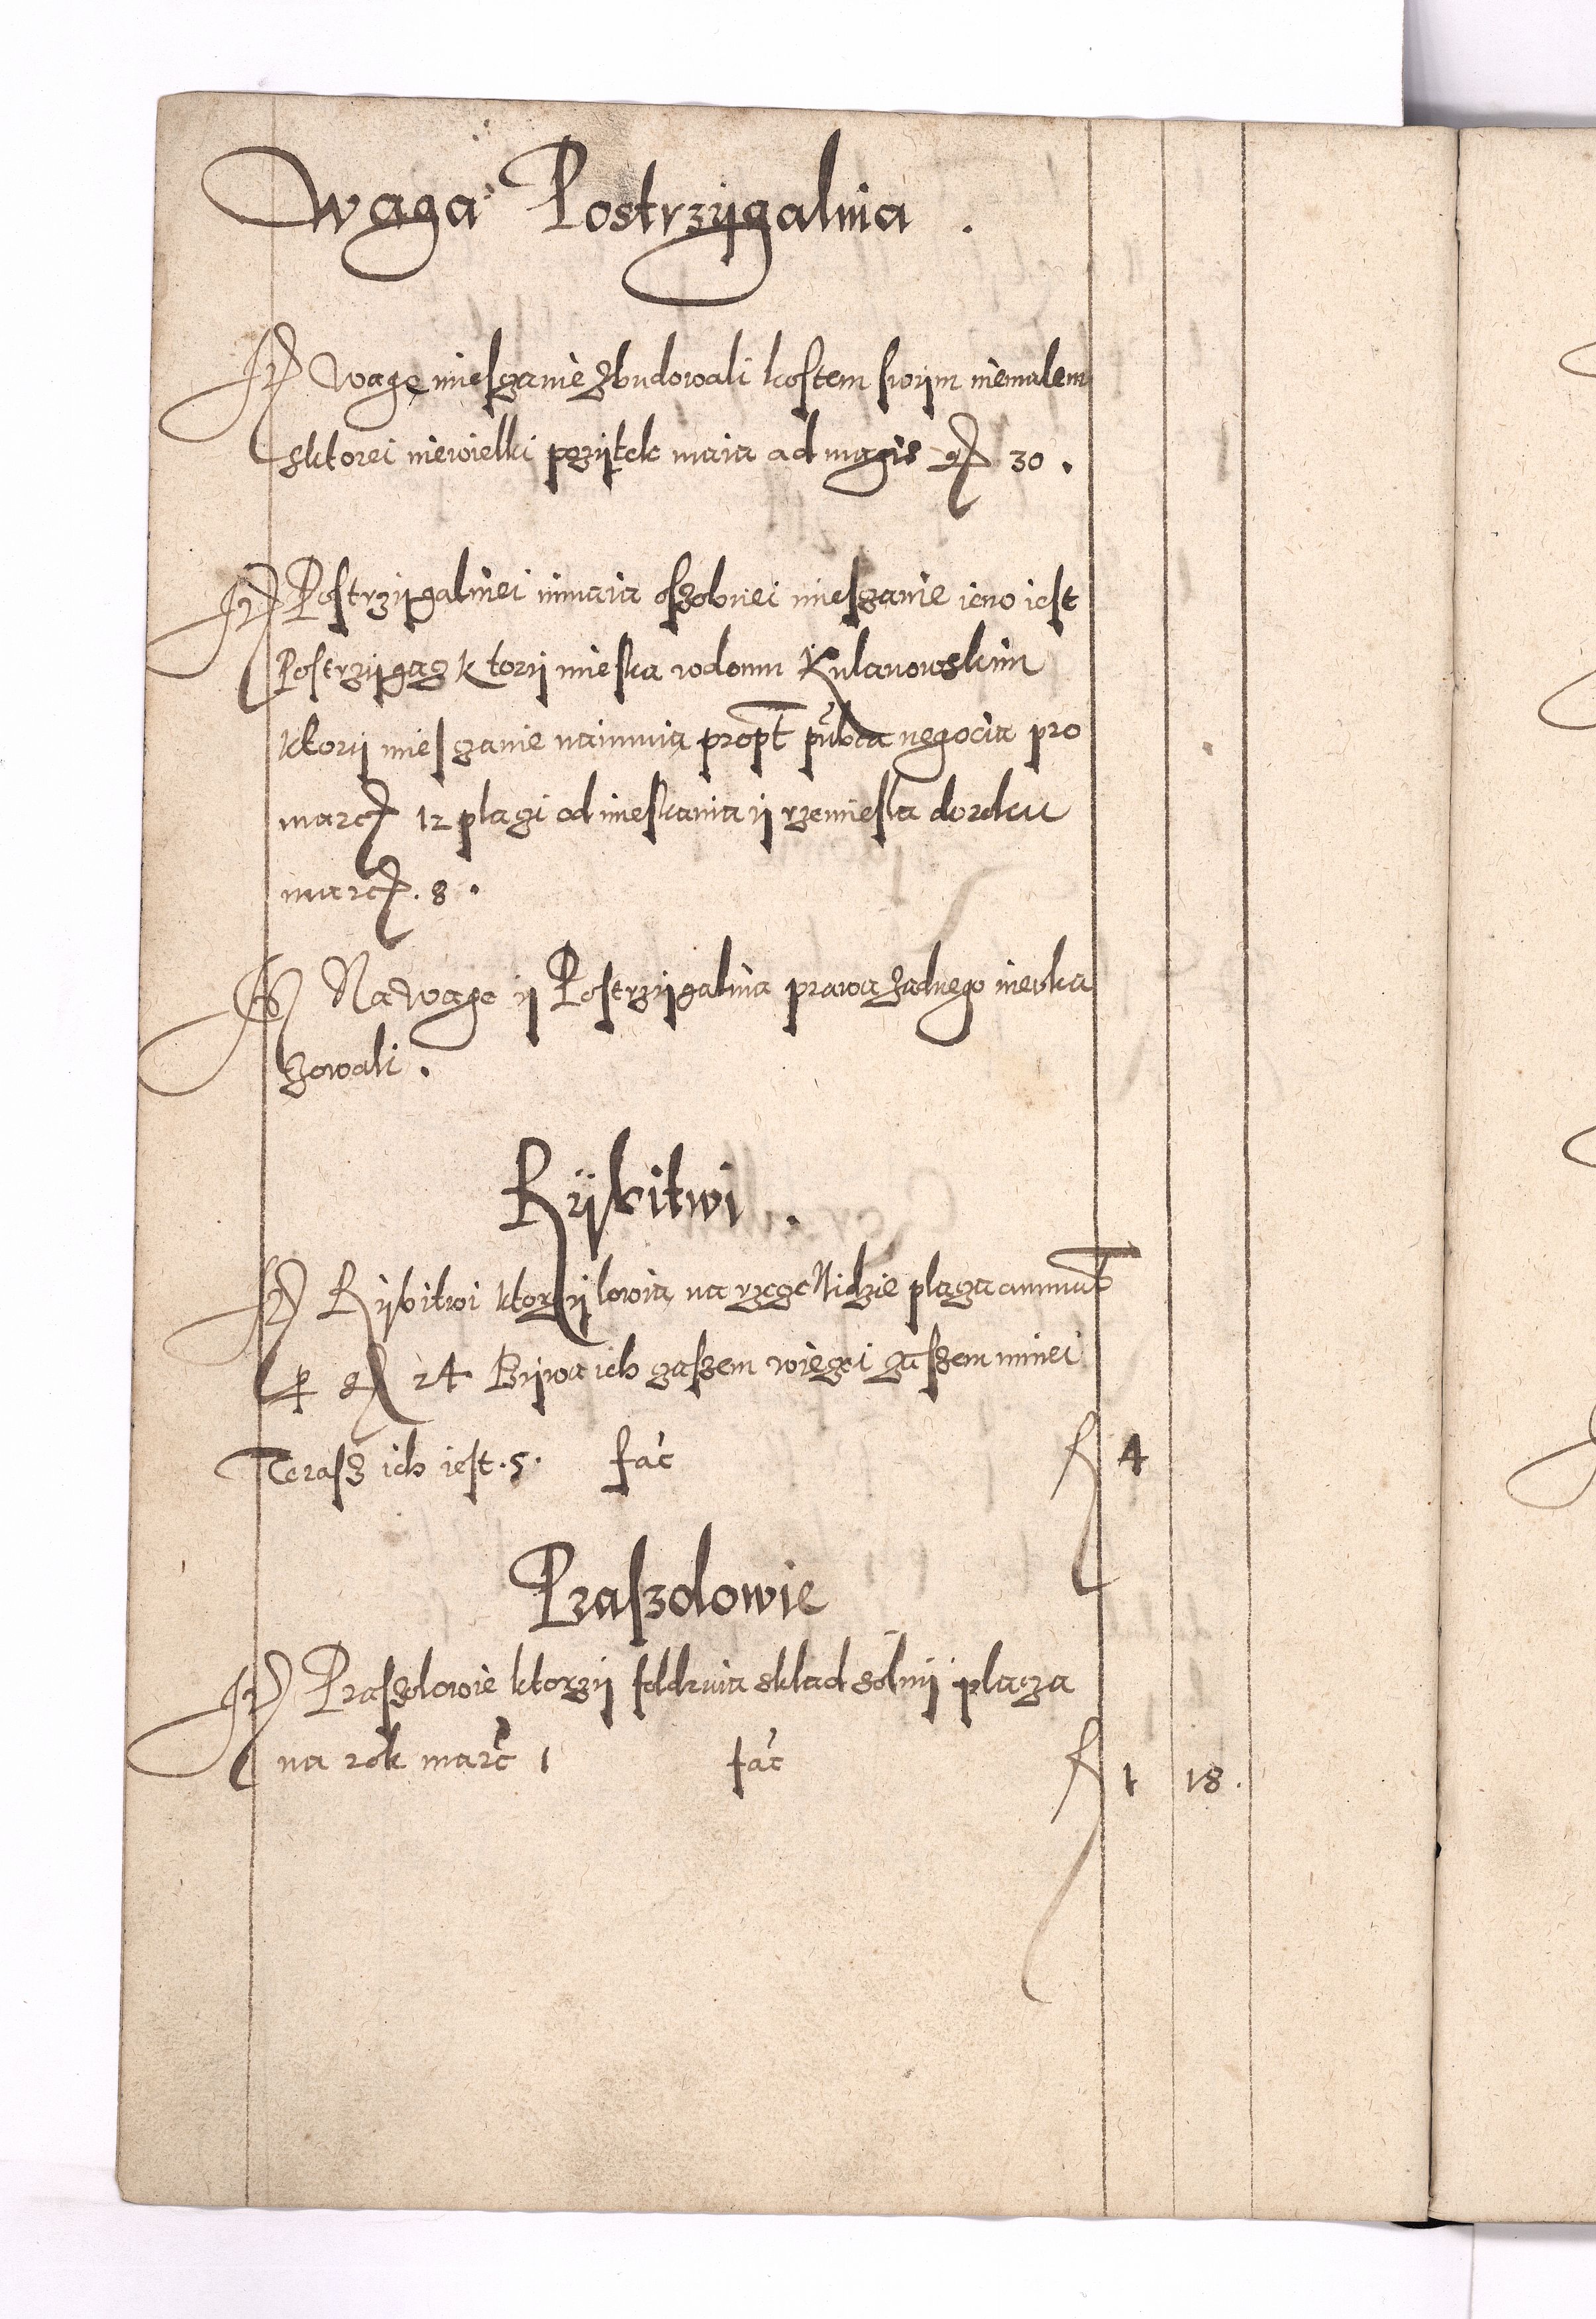 Waga Postrzÿgalnia .
Wagę miesczanie zbudowali kosztem swÿm niemalem
sktorei niewielki pozÿtek maia ad magis gr 30 .
Postrzÿgalniei nimaia oszobnei miesczanie ieno iest
Postrzÿgacz ktorÿ mieska wdomu Kulanowskim
ktorÿ miesczanie naimuia propt pubca negocia pro
marcis 12 placzi od mieskania ÿ rzemiesla doroku
marcis . 8 .
Na Wage ÿ Postrzÿgalnia prawa zadnego nieoka
zowali .
Rÿbitwi .
Rÿbitwi ktorzÿ lowia na rzece Nidzie placza annuat
per gr 24 Bÿwa ich czaszem więczei czaszem mniei
Terasz ich iest . 5 . fac f 4
Praszolowie
Praszolowie ktorzÿ sklad solnÿ placza
na rok marc 1 fac f 1 18 .